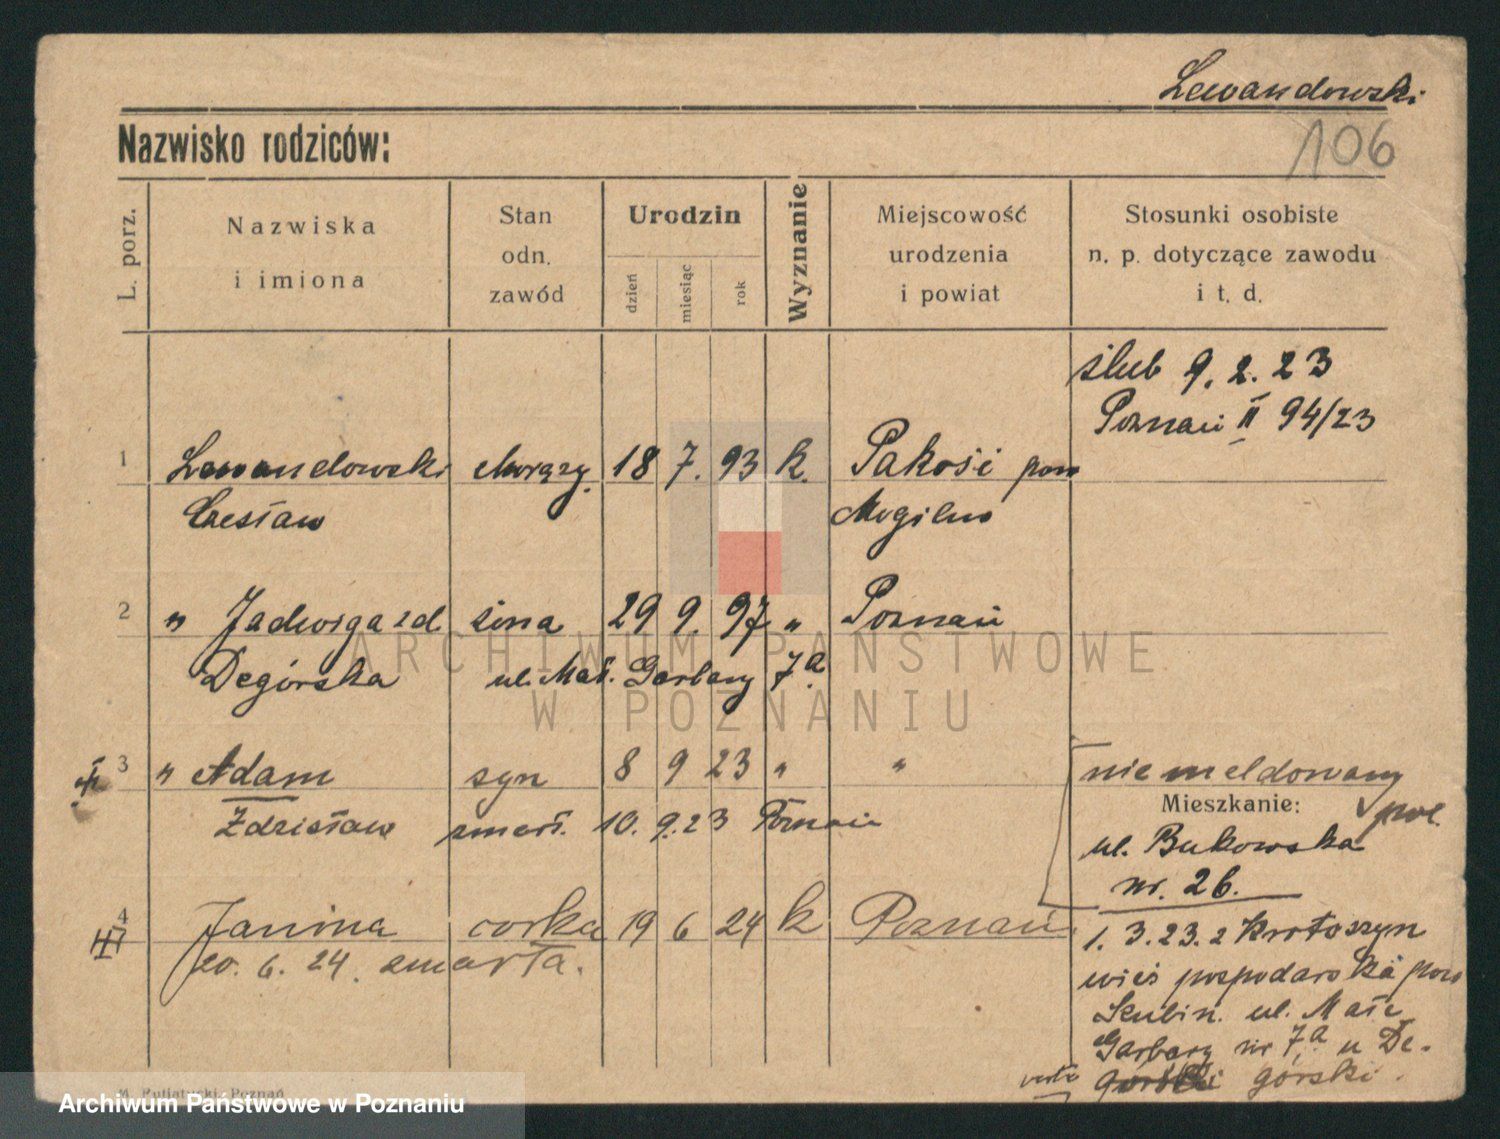 Lewandowski
106
Nazwisko rodziców:
L. porz.
Nazwiska
i imiona
Stan
odn.
zawód
Urodzin
dzień
miesiąc
rok
Wyznanie
Miejscowość
urodzenia
i powiat
Stosunki osobiste
n. p. dotyczące zawodu
i t. d.
ślub 9. 2. 23
Poznań II 94/23
1 Lewandowski chorąży. 18 7. 93 k. Pakość pow
Czesław Mogilno
2 " Jadwiga zd żona 29 9. 97 " Poznań
Degórska ul. Mał. Garbary 7a
3 " Adam syn 8 9 23 " "
Zdzisław zmarł. 10. 9. 23 Poznań
nie meldowany
Mieszkanie:
pol.
ul. Bukowska
nr. 26.
4 Janina corka 19 6 24 k Poznań
20. 6. 24. zmarła.
1. 3. 23. z Krotoszyn
wieś gospodarska pow
Szubin. ul. Małe
Garbary nr 7a. u De-
górski.
verte
M. Putiatycki, Poznań
ARCHIWUM PAŃSTWOWE
W POZNANIU
Archiwum Państwowe w Poznaniu